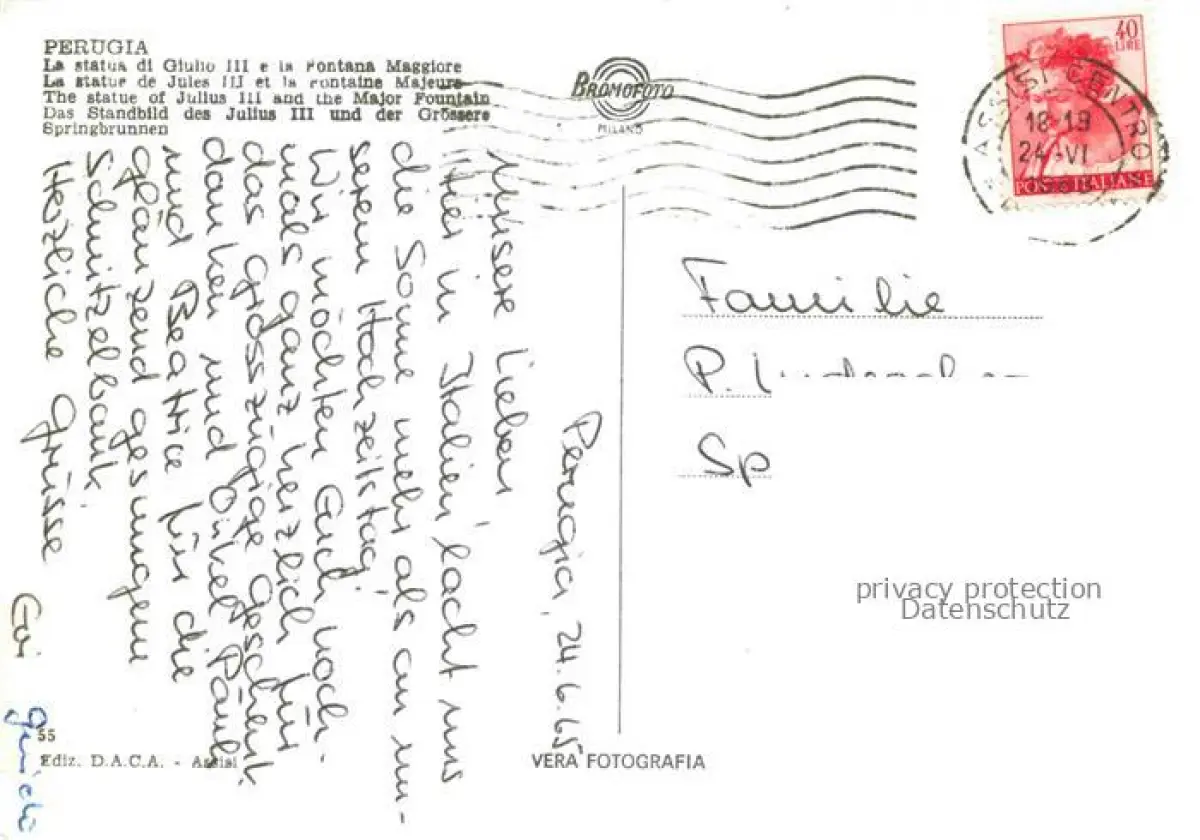 PERUGIA
La statua di Giulio III e la Fontana Maggiore
La statue de Jules III et la Fontaine Majeure
The statue of Julius III and the Major Fountain
Das Standbild des Julius III und der Grössere
Springbrunnen
BROMOFOTO
MILANO
40
LIRE
POSTE ITALIANE
ASSISI CENTRO
18-19
24-VI
Perugia, 24.6.65
Unsere Lieben
Hier in Italien lacht uns
die Sonne mehr als an un-
serem Hochzeitstag.
Wir möchten Euch noch-
mals ganz herzlich für
das grosszügige Geschenk
danken und Onkel Päuli
und Beatrice für die
glänzend gesungene
Schnitzelbank
Herzliche Grüsse
Familie
P.
Sp
privacy protection
Datenschutz
55
Ediz. D.A.C.A. - Assisi
VERA FOTOGRAFIA